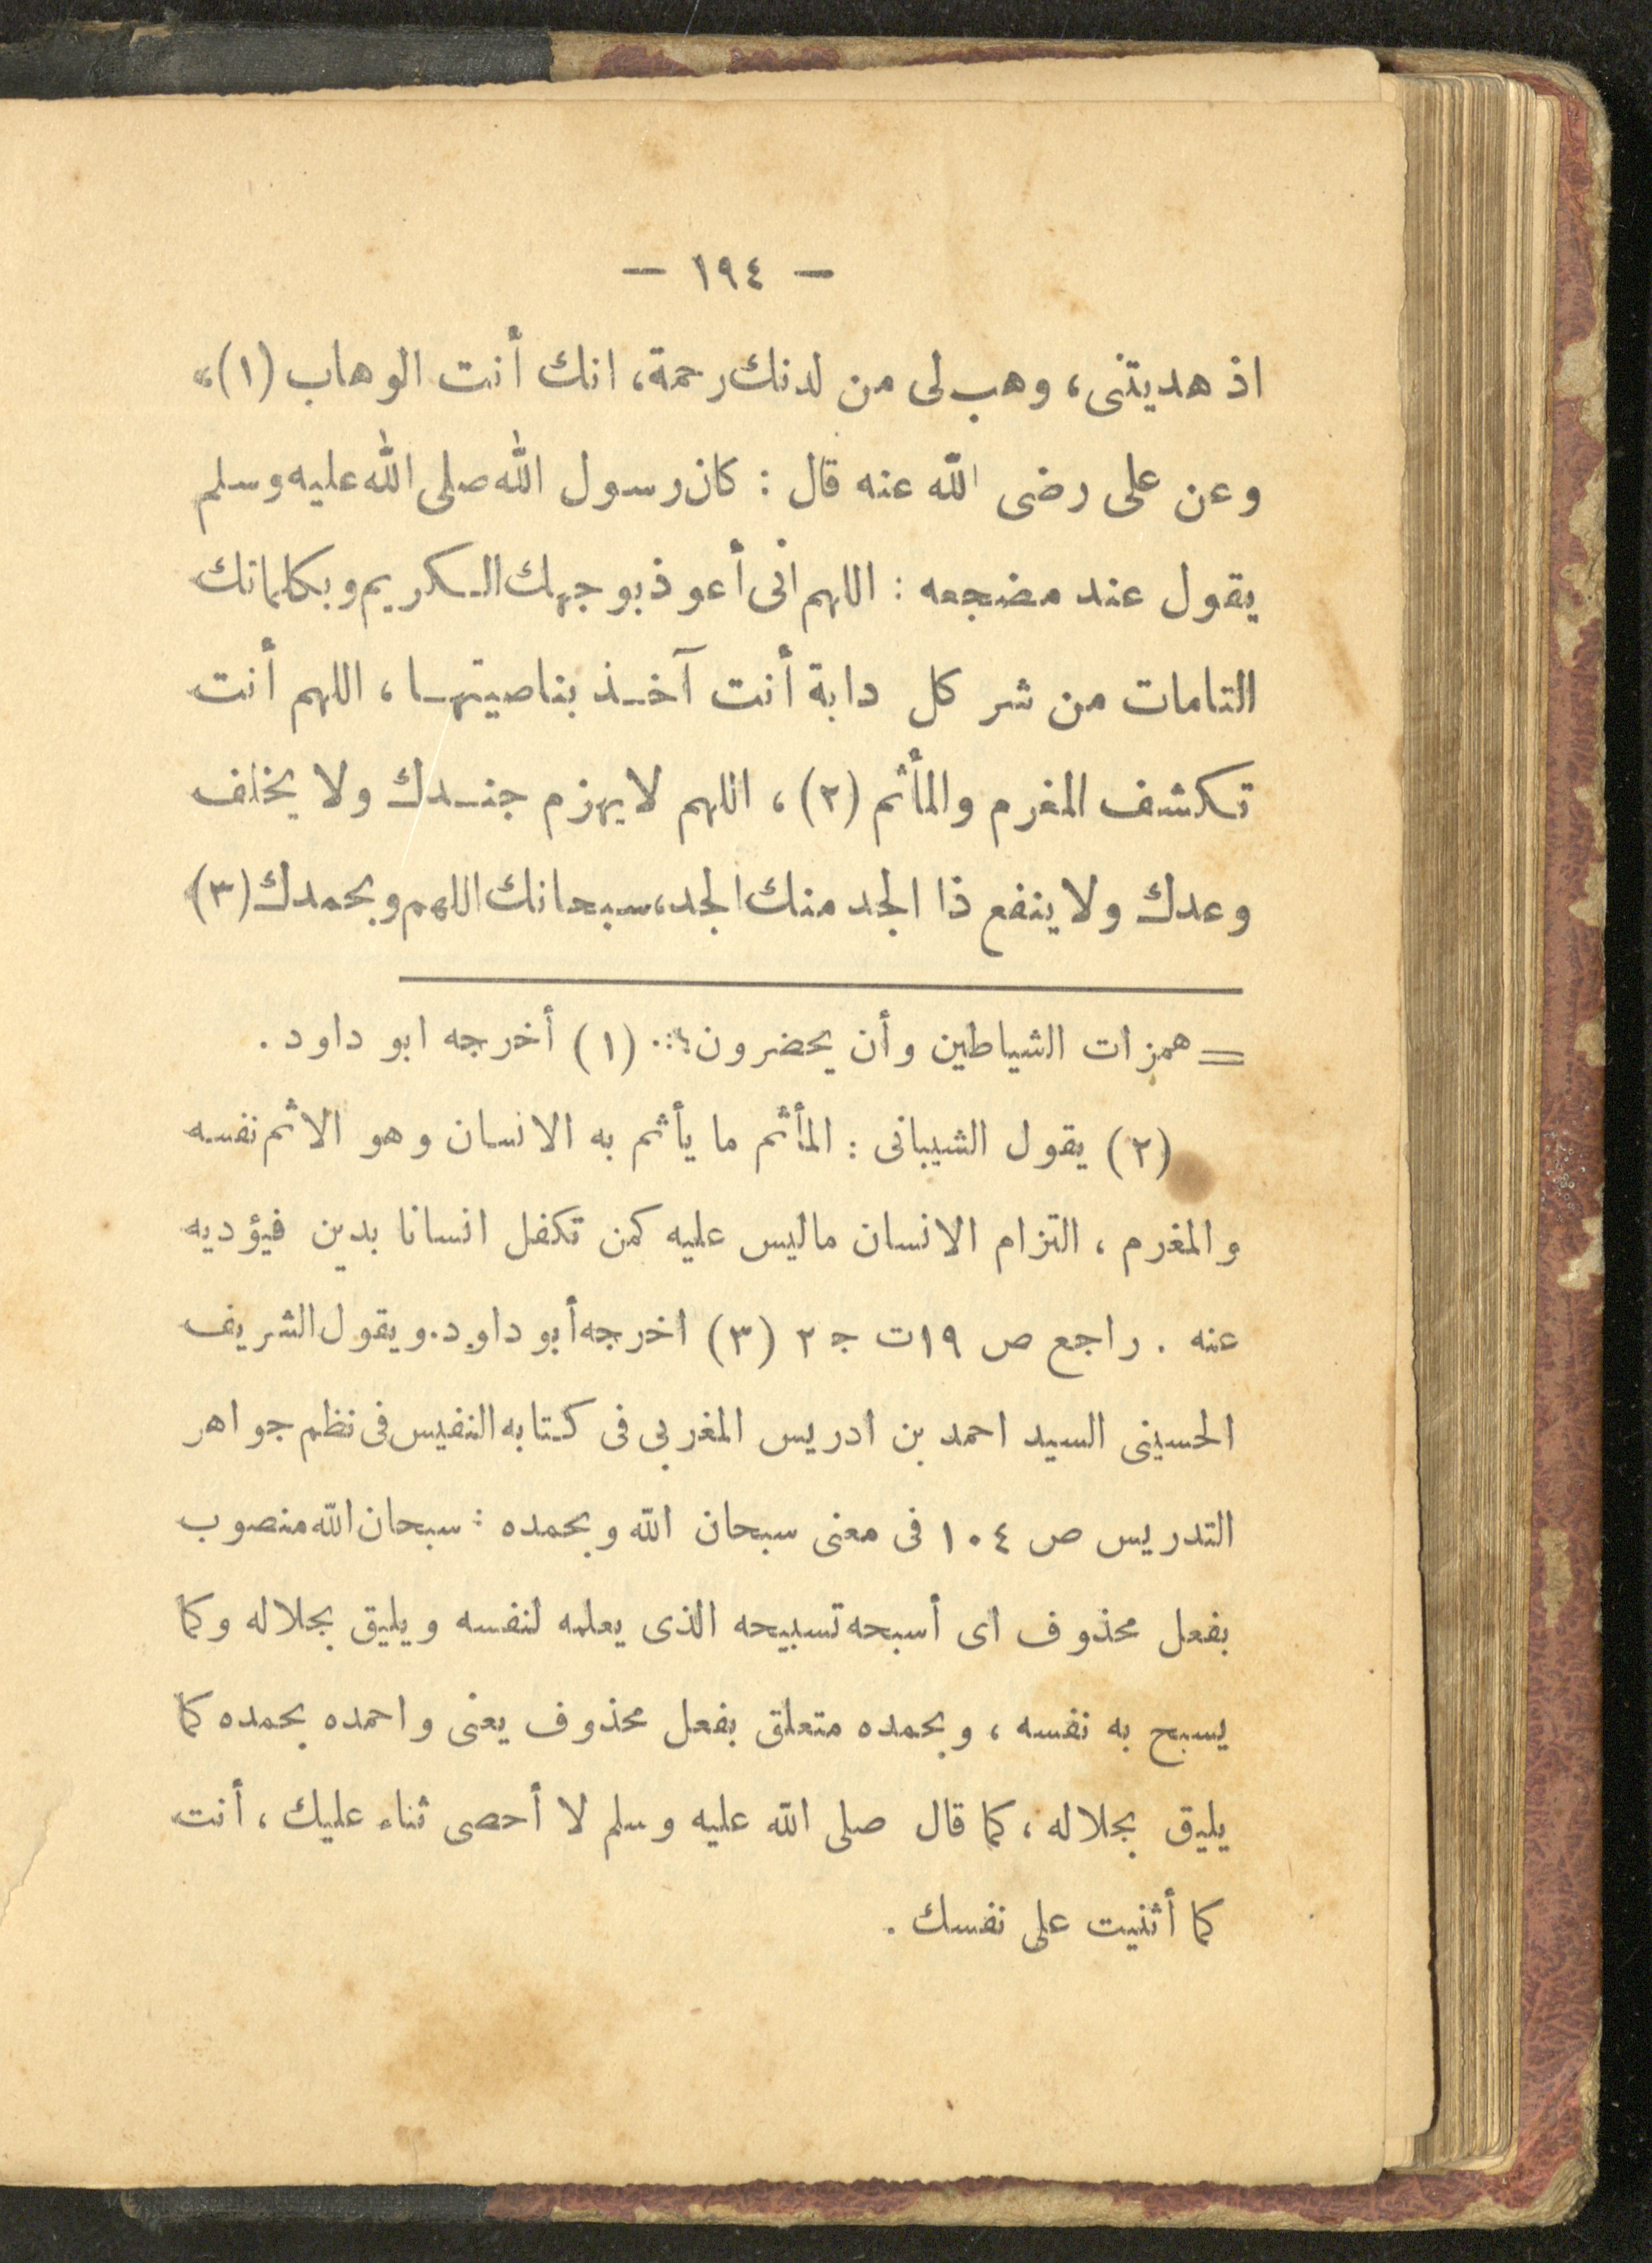 — ١٩٤ —
اذ هديتنى، وهب لى من لدنك رحمة، انك أنت الوهاب (١)»
وعن على رضى الله عنه قال : كان رسول الله صلى الله عليه وسلم
يقول عند مضجعه : اللهم انى أعوذ بوجهك الكريم وبكلماتك
التامات من شر كل دابة أنت آخذ بناصيتها، اللهم أنت
تكشف المغرم والمأثم (٢)، اللهم لا يهزم جندك ولا يخلف
وعدك ولا ينفع ذا الجد منك الجد، سبحانك اللهم وبحمدك (٣)
= همزات الشياطين وأن يحضرون (١) أخرجه ابو داود .
(٢) يقول الشيبانى : المأثم ما يأثم به الانسان وهو الاثم نفسه
والمغرم ، التزام الانسان ماليس عليه كمن تكفل انسانا بدين فيؤديه
عنه . راجع ص ١٩ت ج ٢ (٣) اخرجه أبو داود. ويقول الشريف
الحسينى السيد احمد بن ادريس المغربى فى كتابه النفيس فى نظم جواهر
التدريس ص ١٠٤ فى معنى سبحان الله وبحمده : سبحان الله منصوب
بفعل محذوف اى أسبحه تسبيحه الذى يعلمه لنفسه ويليق بجلاله وكما
يسبح به نفسه ، وبحمده متعلق بفعل محذوف يعنى واحمده بحمده كما
يليق بجلاله ، كما قال صلى الله عليه وسلم لا أحصى ثناء عليك ، أنت
كما أثنيت على نفسك .